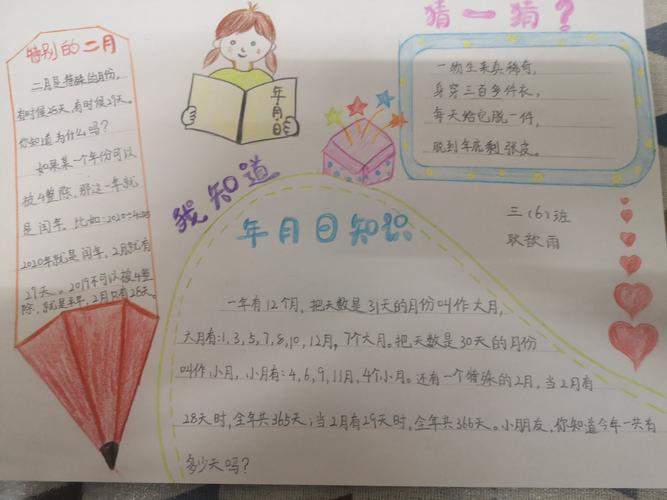 特别的二月
二月是特殊的月份，
有时候28天，有时候29天。
你知道为什么吗？
如果某个年份可以
被4整除，那这一年就
是闰年。比如：2020÷4=505
2020年就是闰年，2月就有
29天。2019不可以被4整
除，就是平年，2月只有28天。
年月日
猜一猜？
一物生来真稀奇，
身穿三百多件衣，
每天给它脱一件，
脱到年底剩张皮。
三（6）班
耿歆雨
我知道
年月日知识
一年有12个月，把天数是31天的月份叫作大月，
大月有：1，3，5，7，8，10，12月，7个大月。把天数是30天的月份
叫作小月，小月有：4，6，9，11月，4个小月。还有一个特殊的2月，当2月有
28天时，全年共365天；当2月有29天时，全年共366天。小朋友，你知道今年一共有
多少天吗？